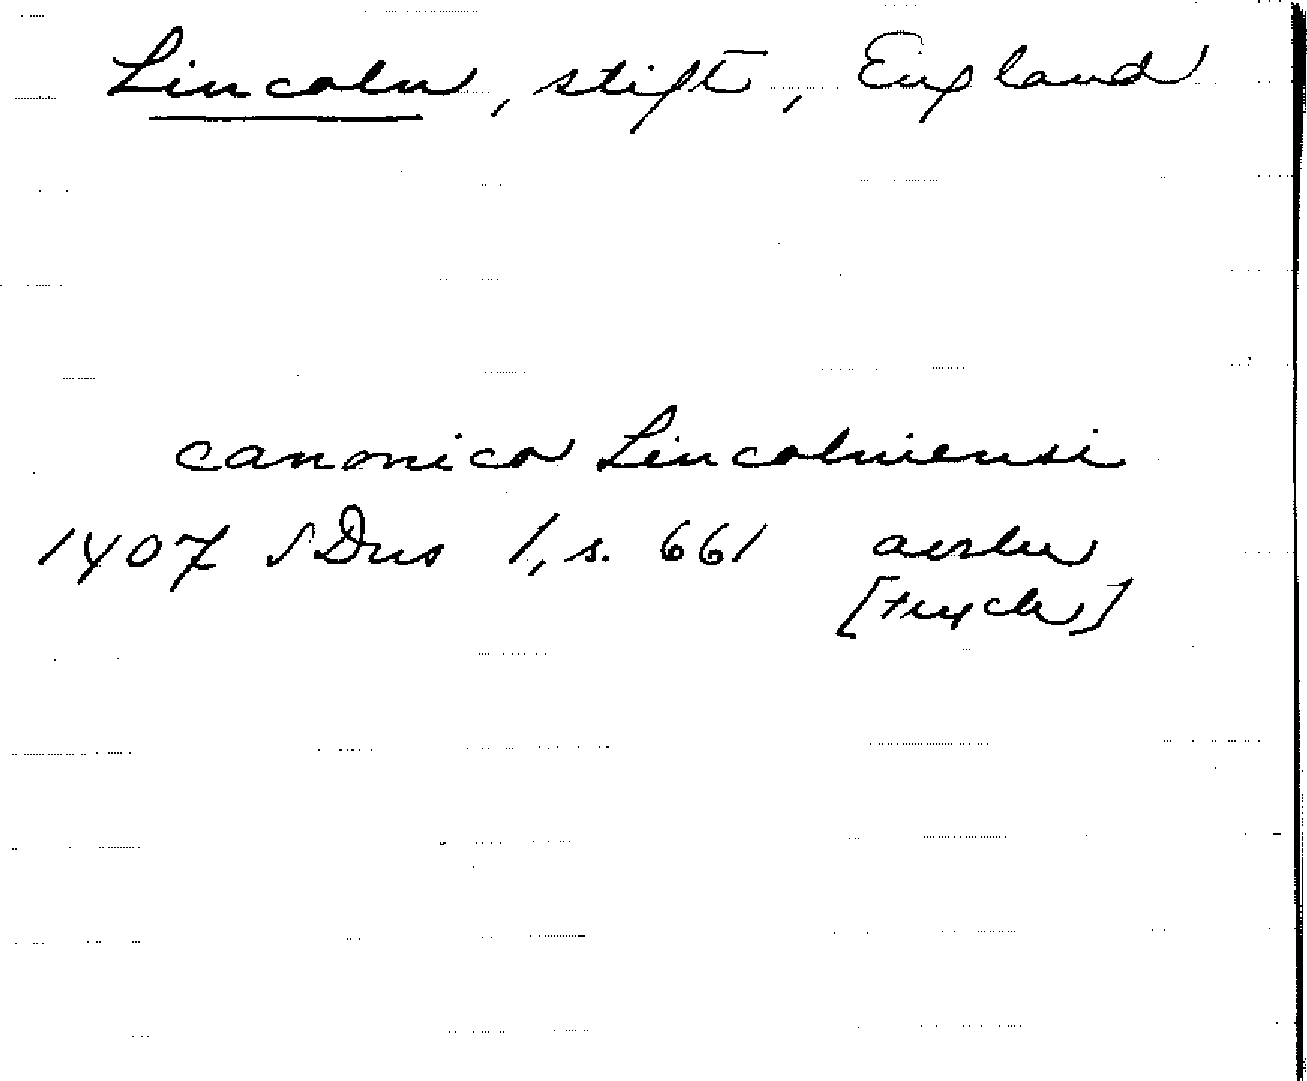 Lincoln, stift, England
canonico Lincolniensi
1407 SDns 1, s. 661 avskr
[tryck]